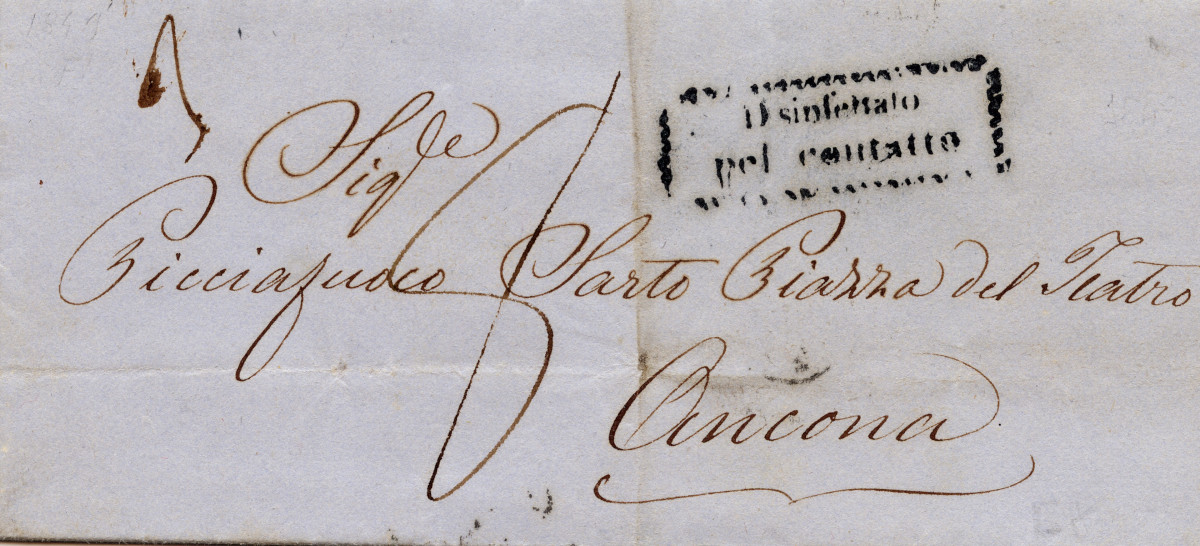 Disinfettato
pel contatto
Sig.le
Picciafuoco Sarto Piazza del Teatro
Ancona